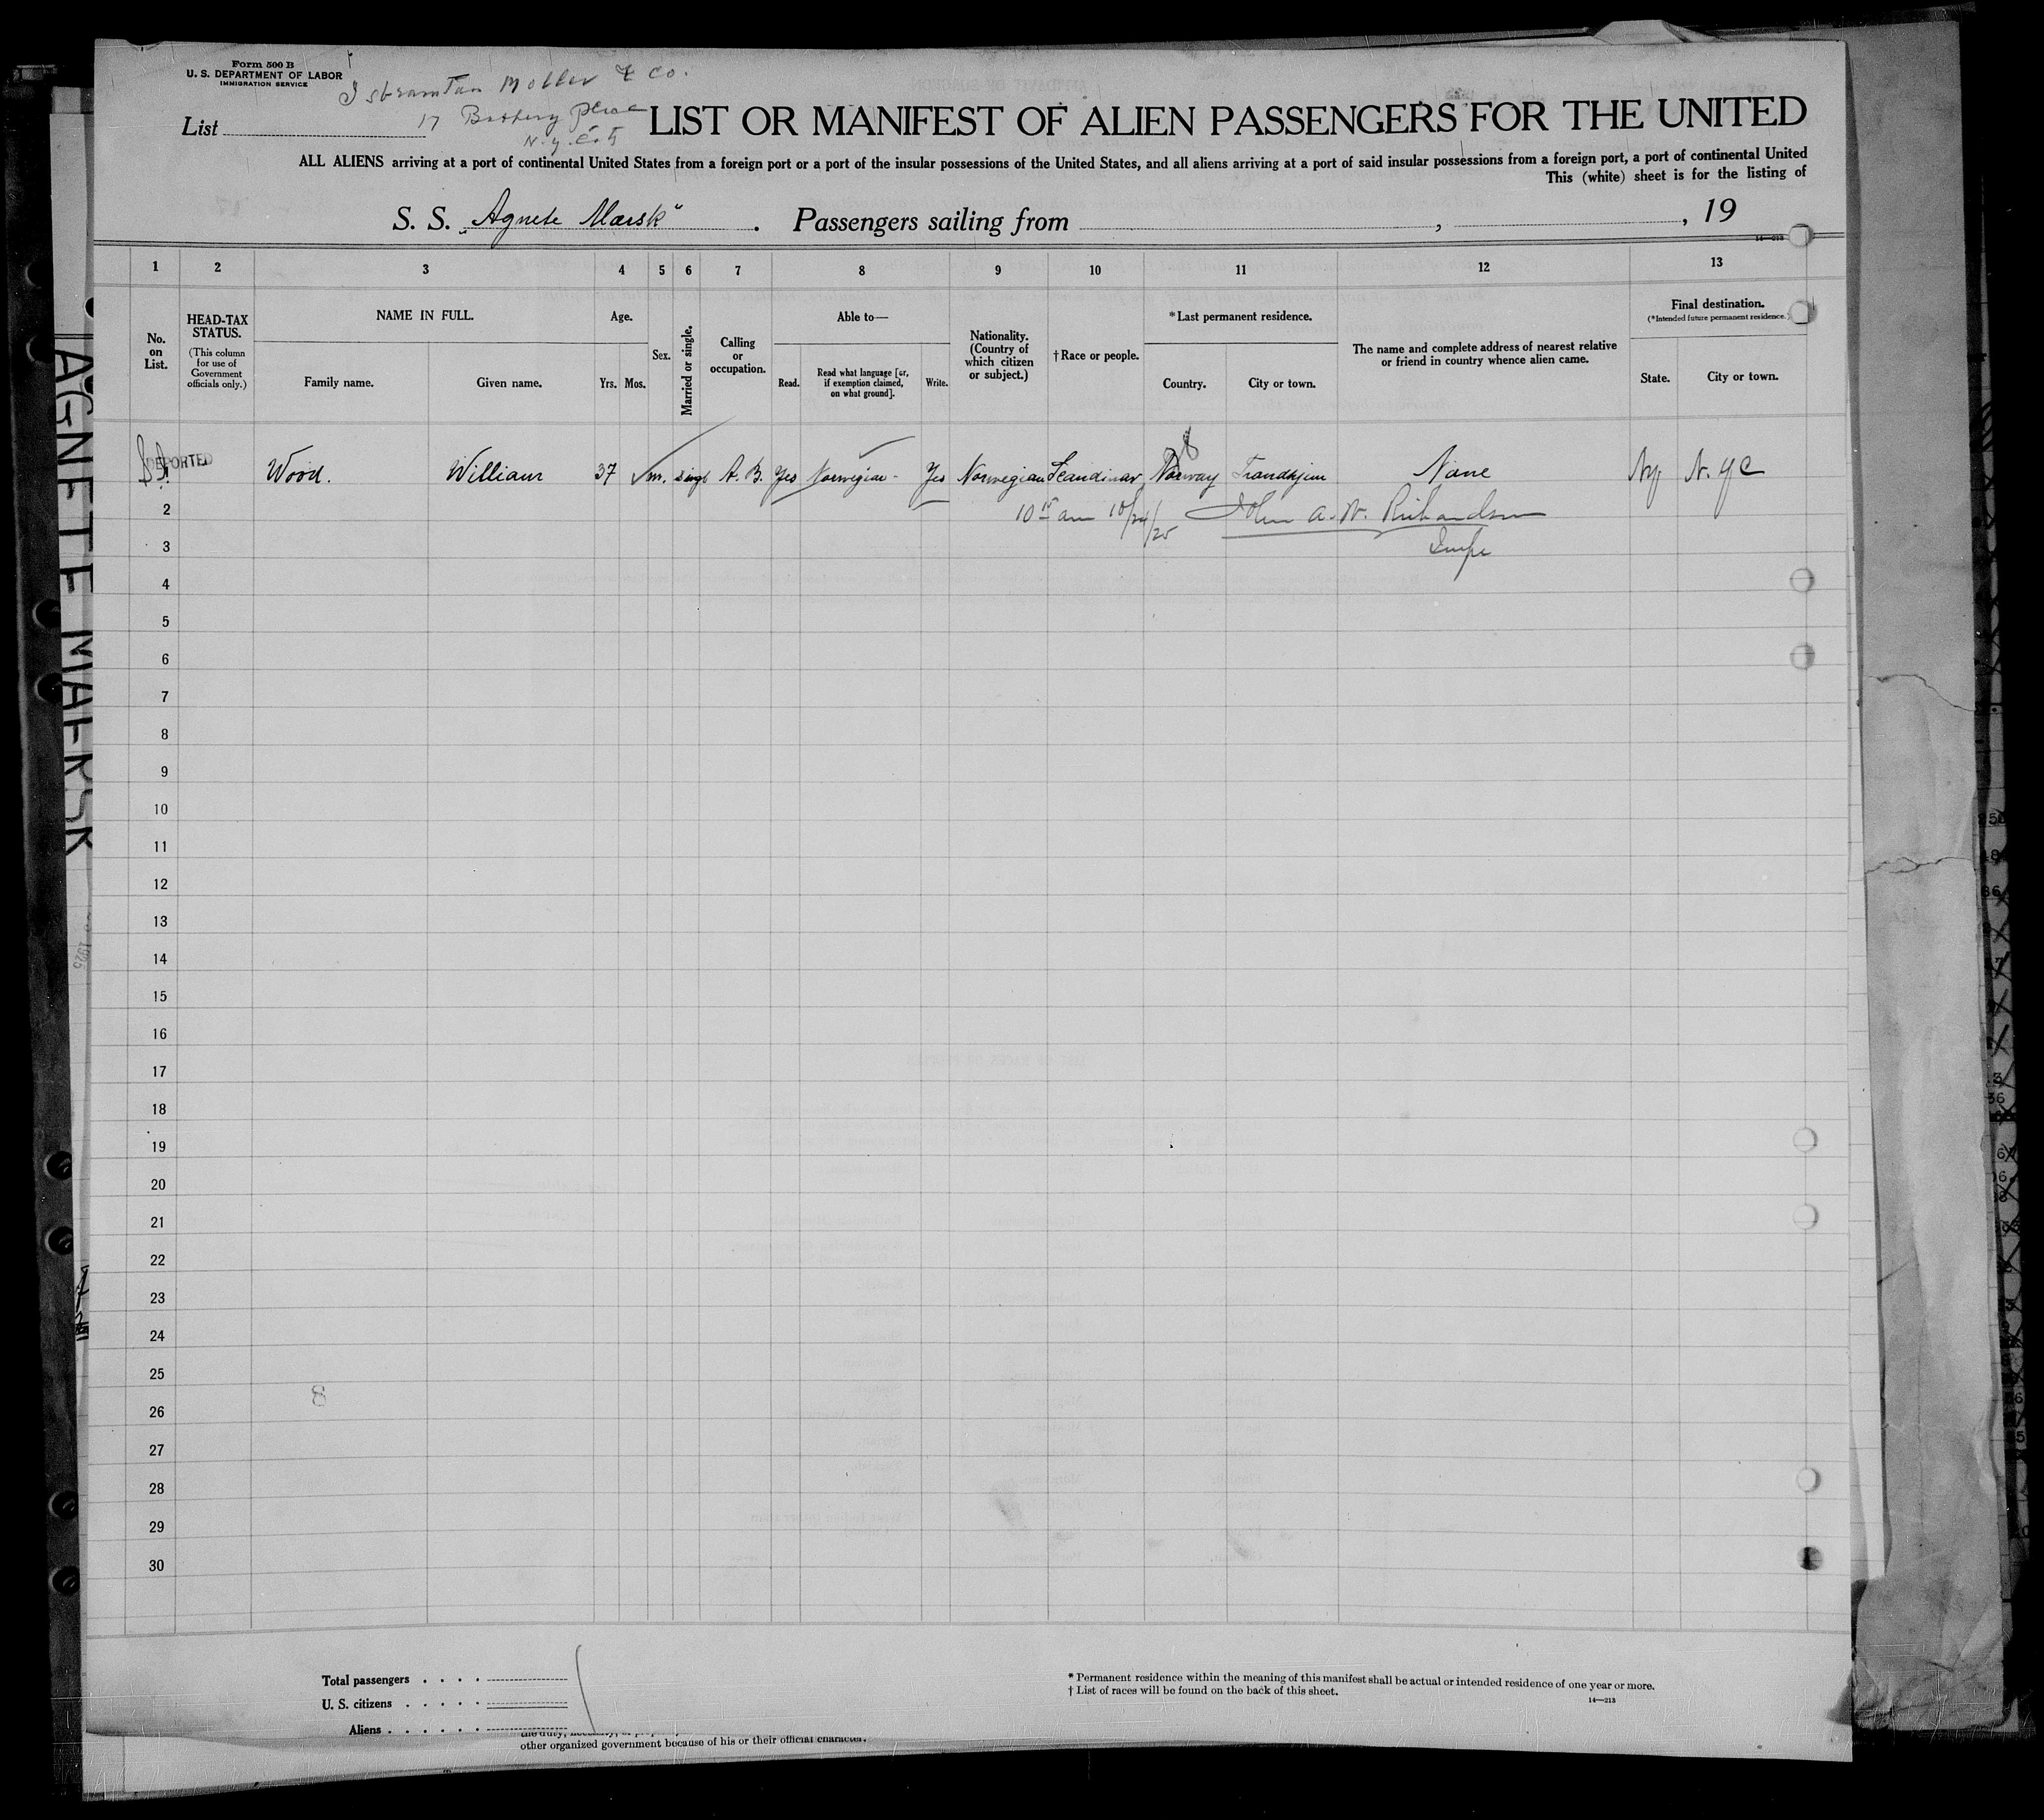 Form 500 B
U. S. DEPARTMENT OF LABOR
IMMIGRATION SERVICE
Moller & Co.
17 Battery Place
N. Y. C.
List
LIST OR MANIFEST OF ALIEN PASSENGERS FOR THE UNITED
ALL ALIENS arriving at a port of continental United States from a foreign port or a port of the insular possessions of the United States, and all aliens arriving at a port of said insular possessions from a foreign port, a port of continental United
This (white) sheet is for the listing of
S. S. "Agnete Mærsk". Passengers sailing from , , 19
14—213
1 2 3 4 5 6 7 8 9 10 11 12 13
No. on List.
HEAD-TAX STATUS.
(This column for use of Government officials only.)
NAME IN FULL.
Family name. Given name.
Age.
Yrs. Mos.
Sex.
Married or single.
Calling or occupation.
Able to—
Read. Read what language [or, if exemption claimed, on what ground]. Write.
Nationality. (Country of which citizen or subject.)
† Race or people.
* Last permanent residence.
Country. City or town.
The name and complete address of nearest relative or friend in country whence alien came.
Final destination.
(* Intended future permanent residence.)
State. City or town.
DEPORTED Wood. William 37 m. singl A. B. Yes Norwegian - Yes Norwegian Scandinav. Norway Trondhjem None Ny N. Y C
2 10 15 am 10/24/25 John A. W. Richardson
3 Insp
4
5
6
7
8
9
10
11
12
13
14
15
16
17
18
19
20
21
22
23
24
25
8
26
27
28
29
30
Total passengers
U. S. citizens
Aliens
* Permanent residence within the meaning of this manifest shall be actual or intended residence of one year or more.
† List of races will be found on the back of this sheet.
14—213
other organized government because of his or their official character.
AGNETE MAERSK
1925